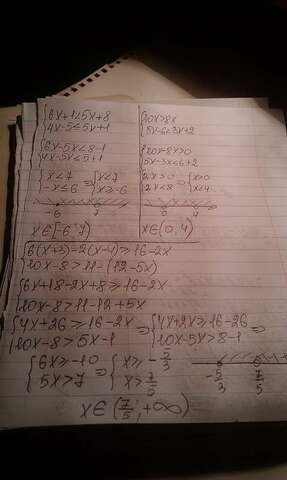 {6x+1<5x+8
{4x-5≤5x+1
{6x-5x<8-1
{4x-5x≤5+1
{x<7
{-x≤6
={x<7
{x≥-6
-6 7
x∈[-6;7)
{10x>8x
{5x-6<3x+2
{10x-8x>0
{5x-3x<6+2
{2x>0
{2x<8
={x>0
{x<4
0 4
x∈(0;4)
{6(x+3)-2(x-4)≥16-2x
{10x-8>11-(12-5x)
{6x+18-2x+8≥16-2x
{10x-8>11-12+5x
{4x+26≥16-2x ⇒ {4x+2x≥16-26 ⇒
{10x-8>5x-1 {10x-5x>8-1
{6x≥-10 ⇒ {x≥-5/3
{5x>7 {x>7/5
-5/3 7/5
x∈(7/5;+∞)